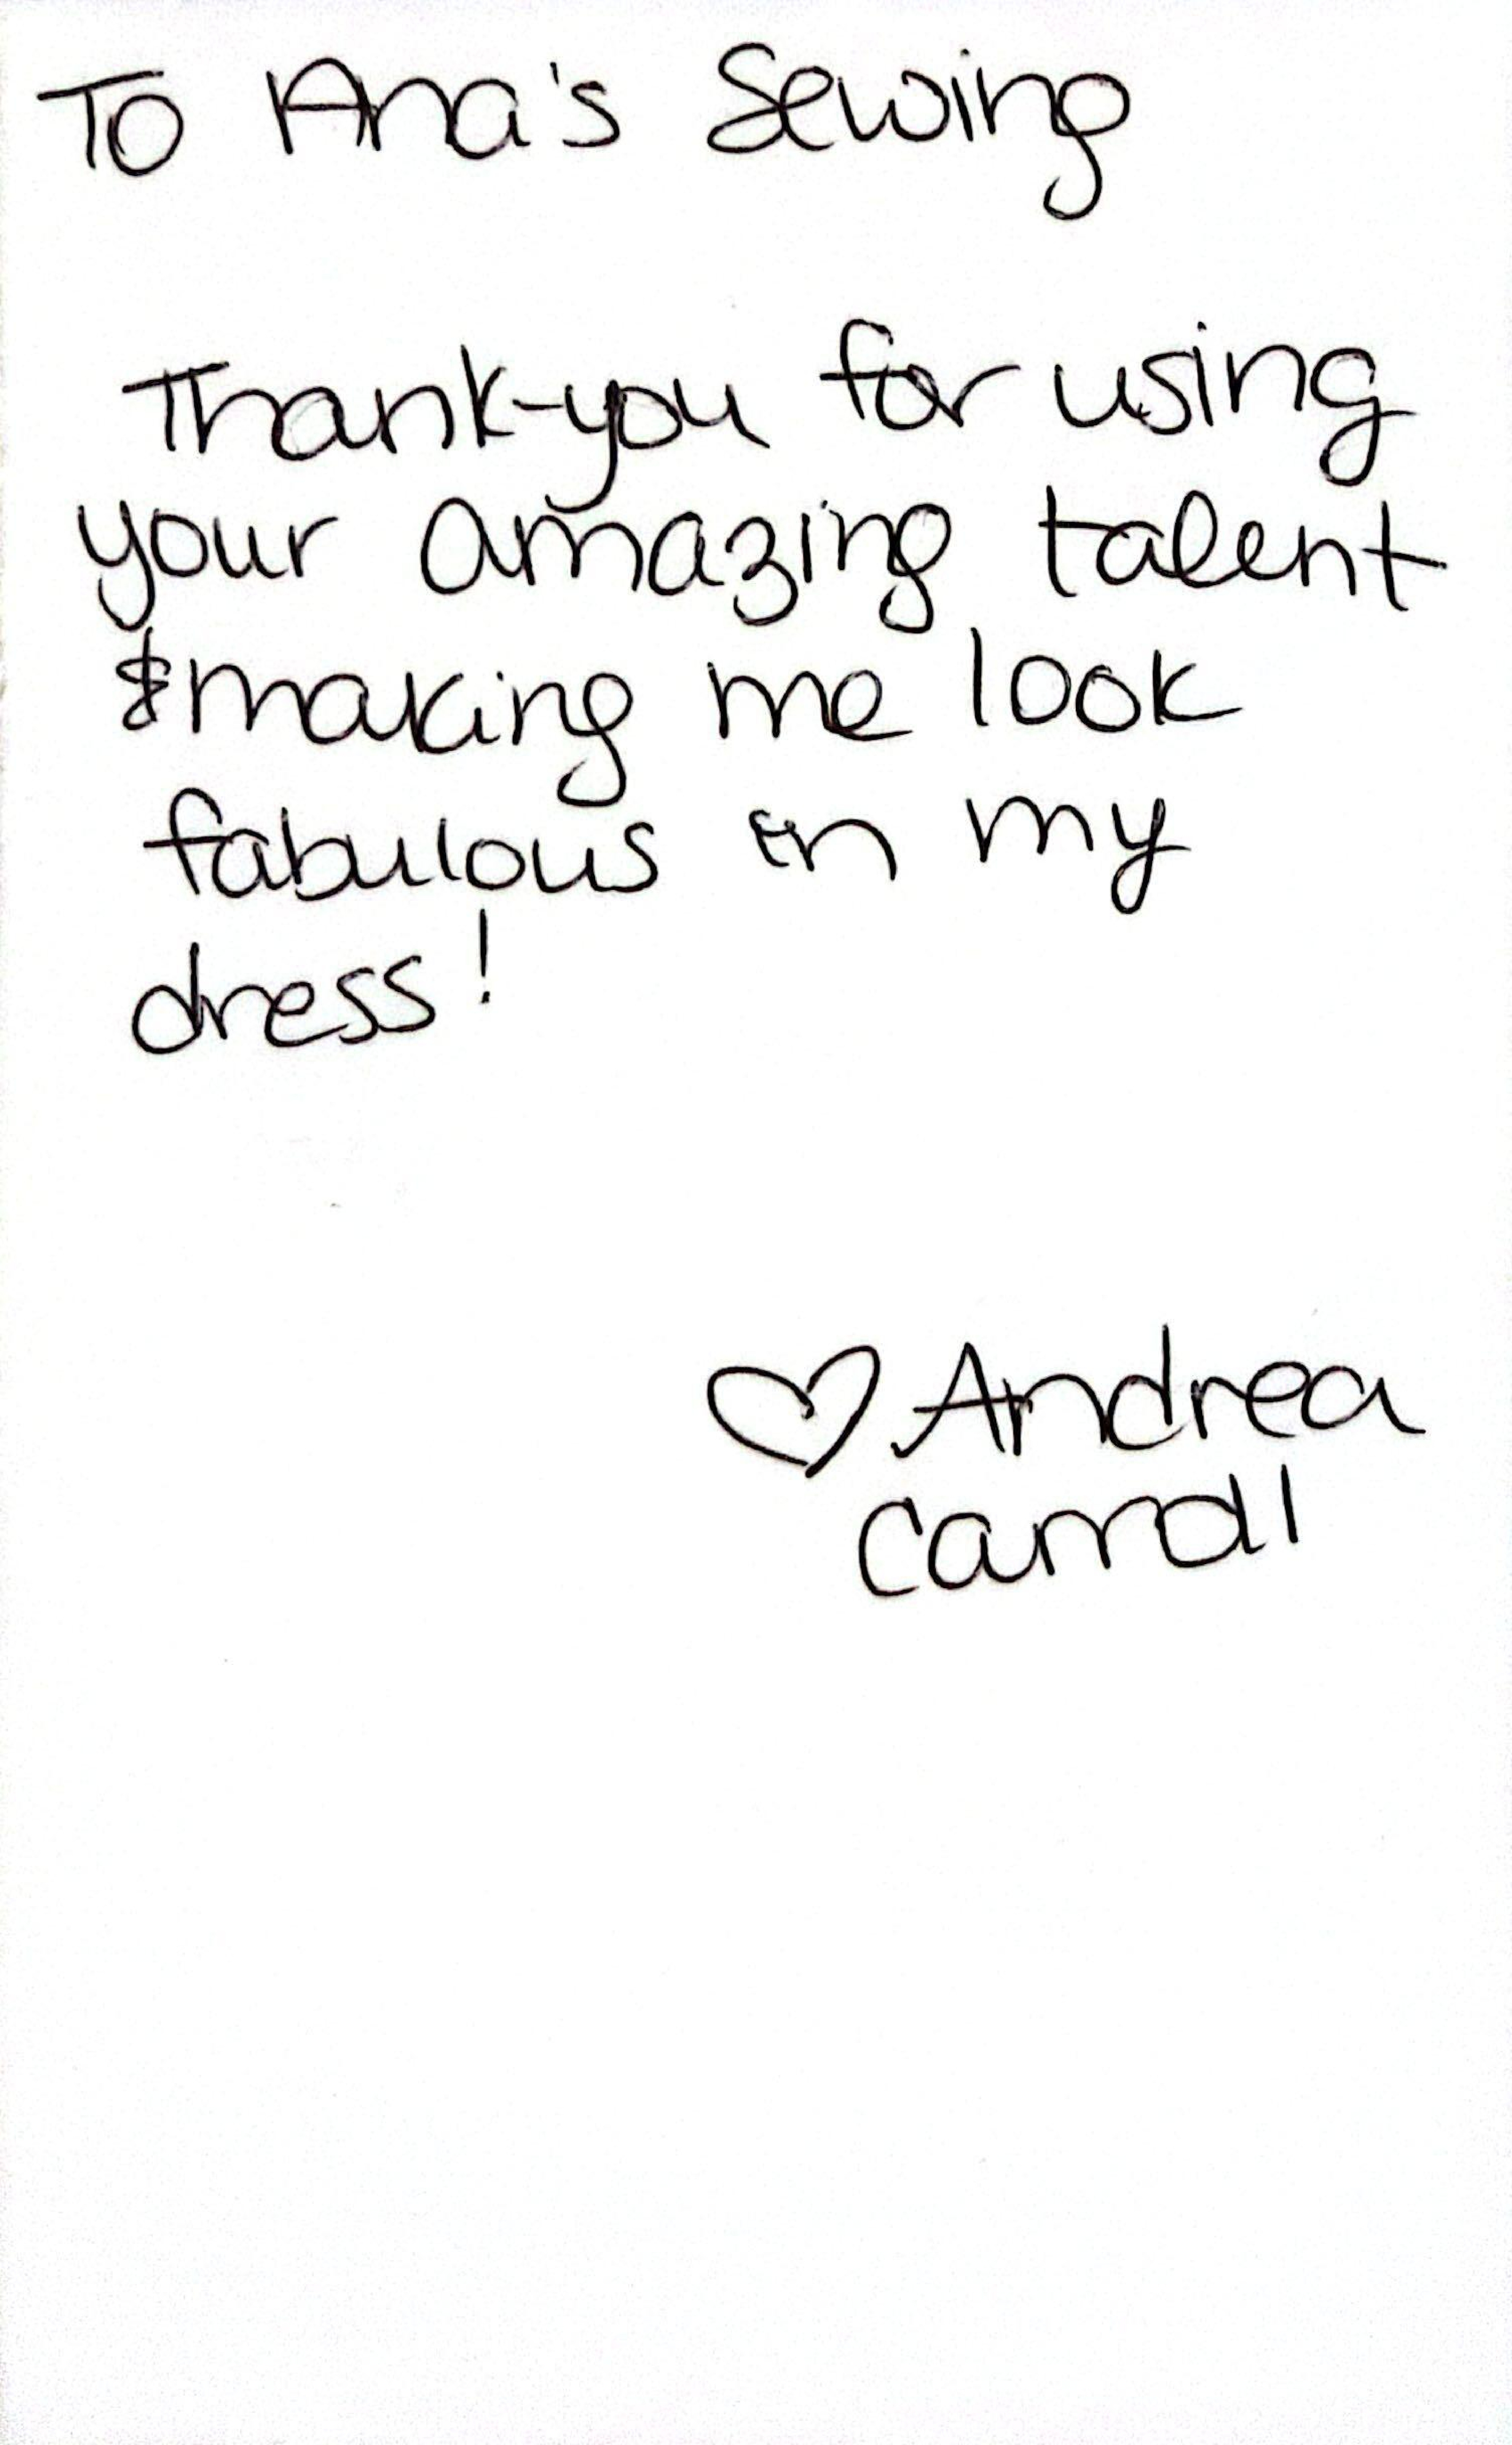 To Ana's Sewing
Thank-you for using
your amazing talent
& making me look
fabulous in my
dress!
♡ Andrea
Carroll